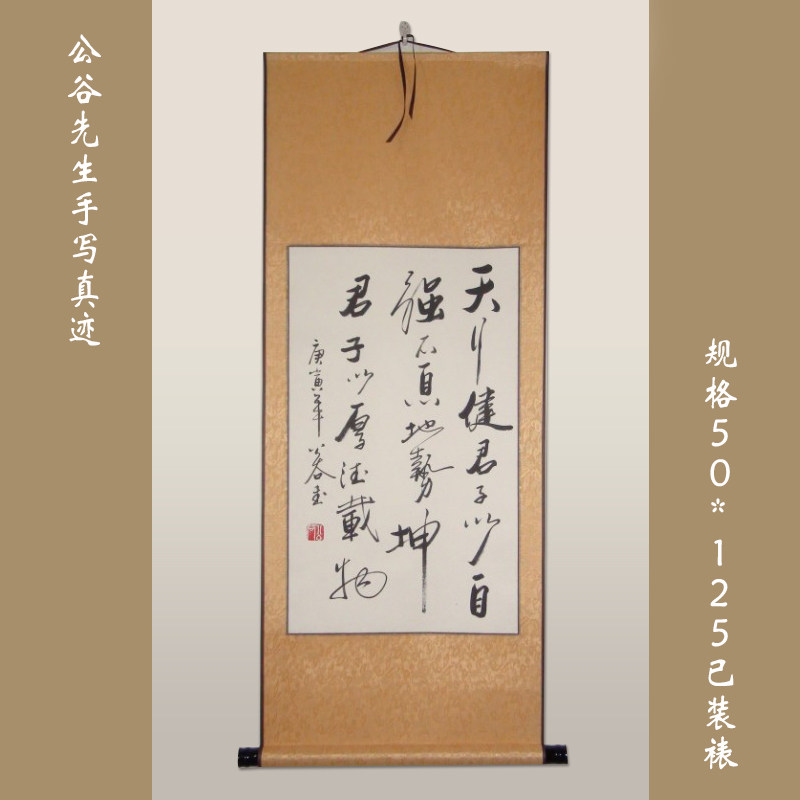 公谷先生手写真迹
天行健君子以自
强不息地勢坤
君子以厚德載物
庚寅年公谷書
规格50*125已装裱